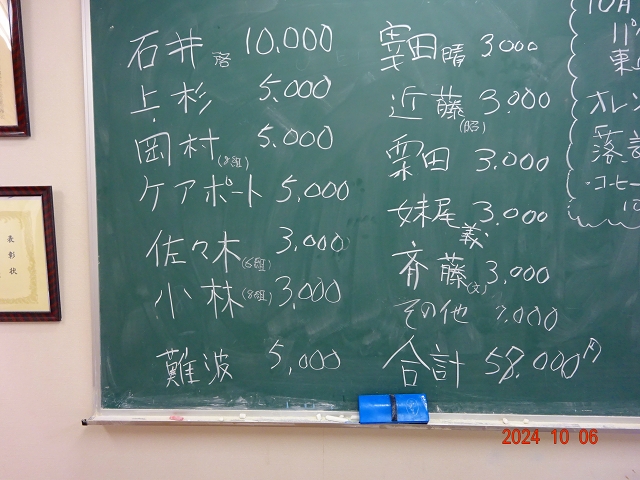 石井 10,000
上杉 5,000
岡村 5,000
ケアポート 5,000
佐々木(6組) 3,000
小林(8組) 3,000
難波 5,000
田晴 3,000
近藤(昭) 3,000
栗田 3,000
妹尾義 3,000
斉藤(文) 3,000
その他 7,000
合計 58,000円
10月
東
オレン
落語
・コーヒー
表彰状
2024 10 06